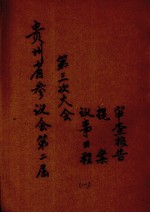 贵州省参议会第二届
第三次大会
审查报告
提案
议事日程
(一)